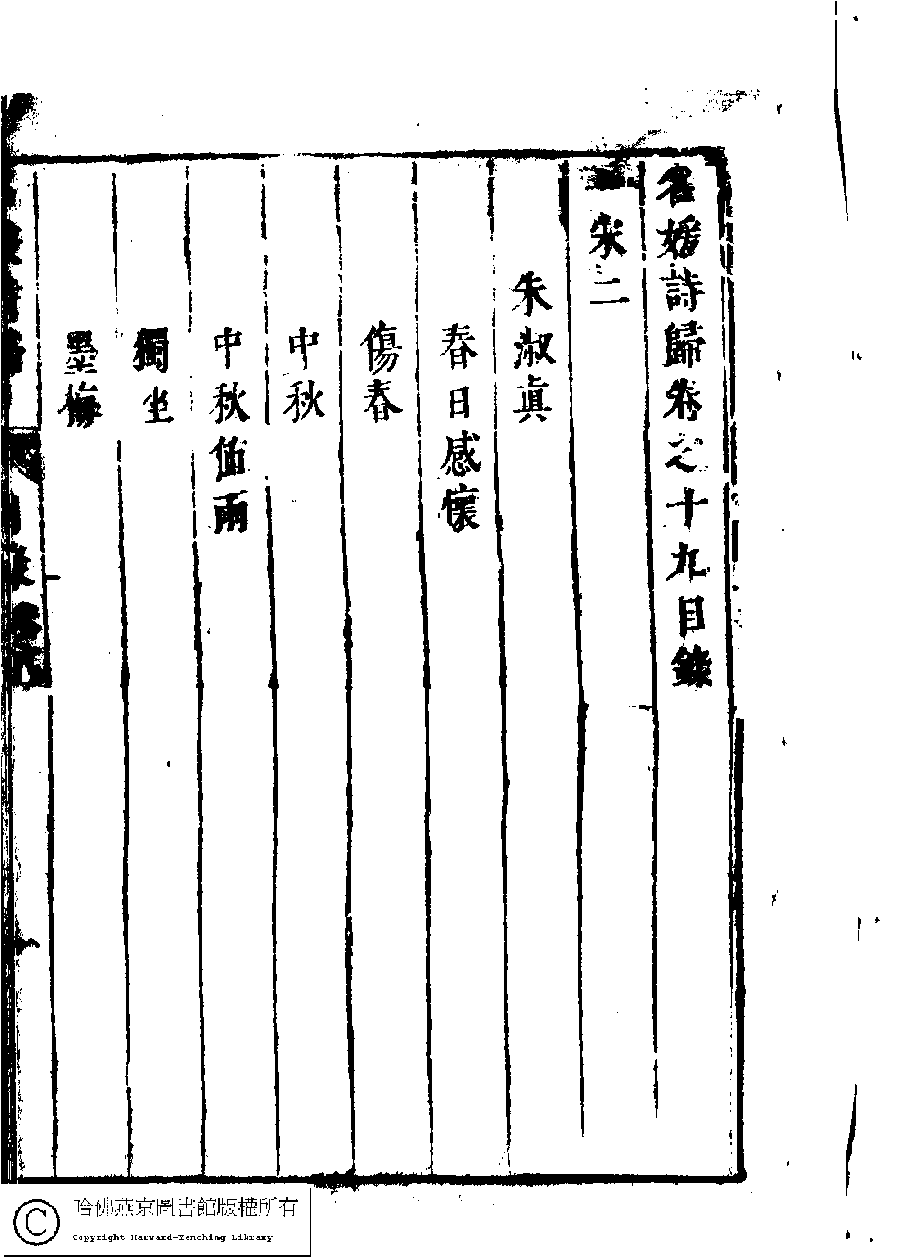 名媛詩歸卷之十九目錄
宋二
朱淑眞
春日感懷
傷春
中秋
中秋值雨
獨坐
墨梅
哈佛燕京圖書館版權所有
Copyright Harvard-Yenching Library